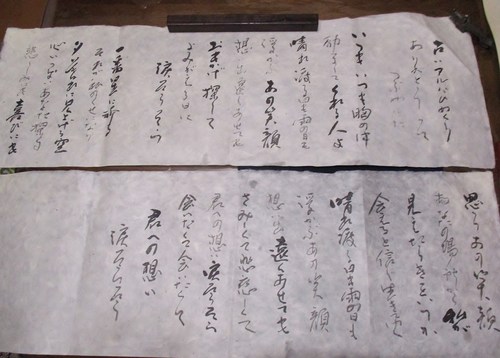 古いアルバムめくり
ありがとうって
つぶやいた
いつもいつも胸の中
励ましてくれる人よ
晴れ渡る日も雨の日も
浮かぶあの笑顔
想い出遠くあせても
おもかげ探して
よみがえる日は
涙そうそう
一番星に祈る
それが私のくせになり
夕暮れに見上げる空
心いっぱいあなた探す
悲しみにも喜びにも
思うあの笑顔
あなたの場所から私が
見えたらきっといつか
会えると信じ生きてゆく
晴れ渡る日も雨の日も
浮かぶあの笑顔
想い出遠くあせても
さみしくて恋しくて
君への想い涙そうそう
会いたくて会いたくて
君への想い
涙そうそう